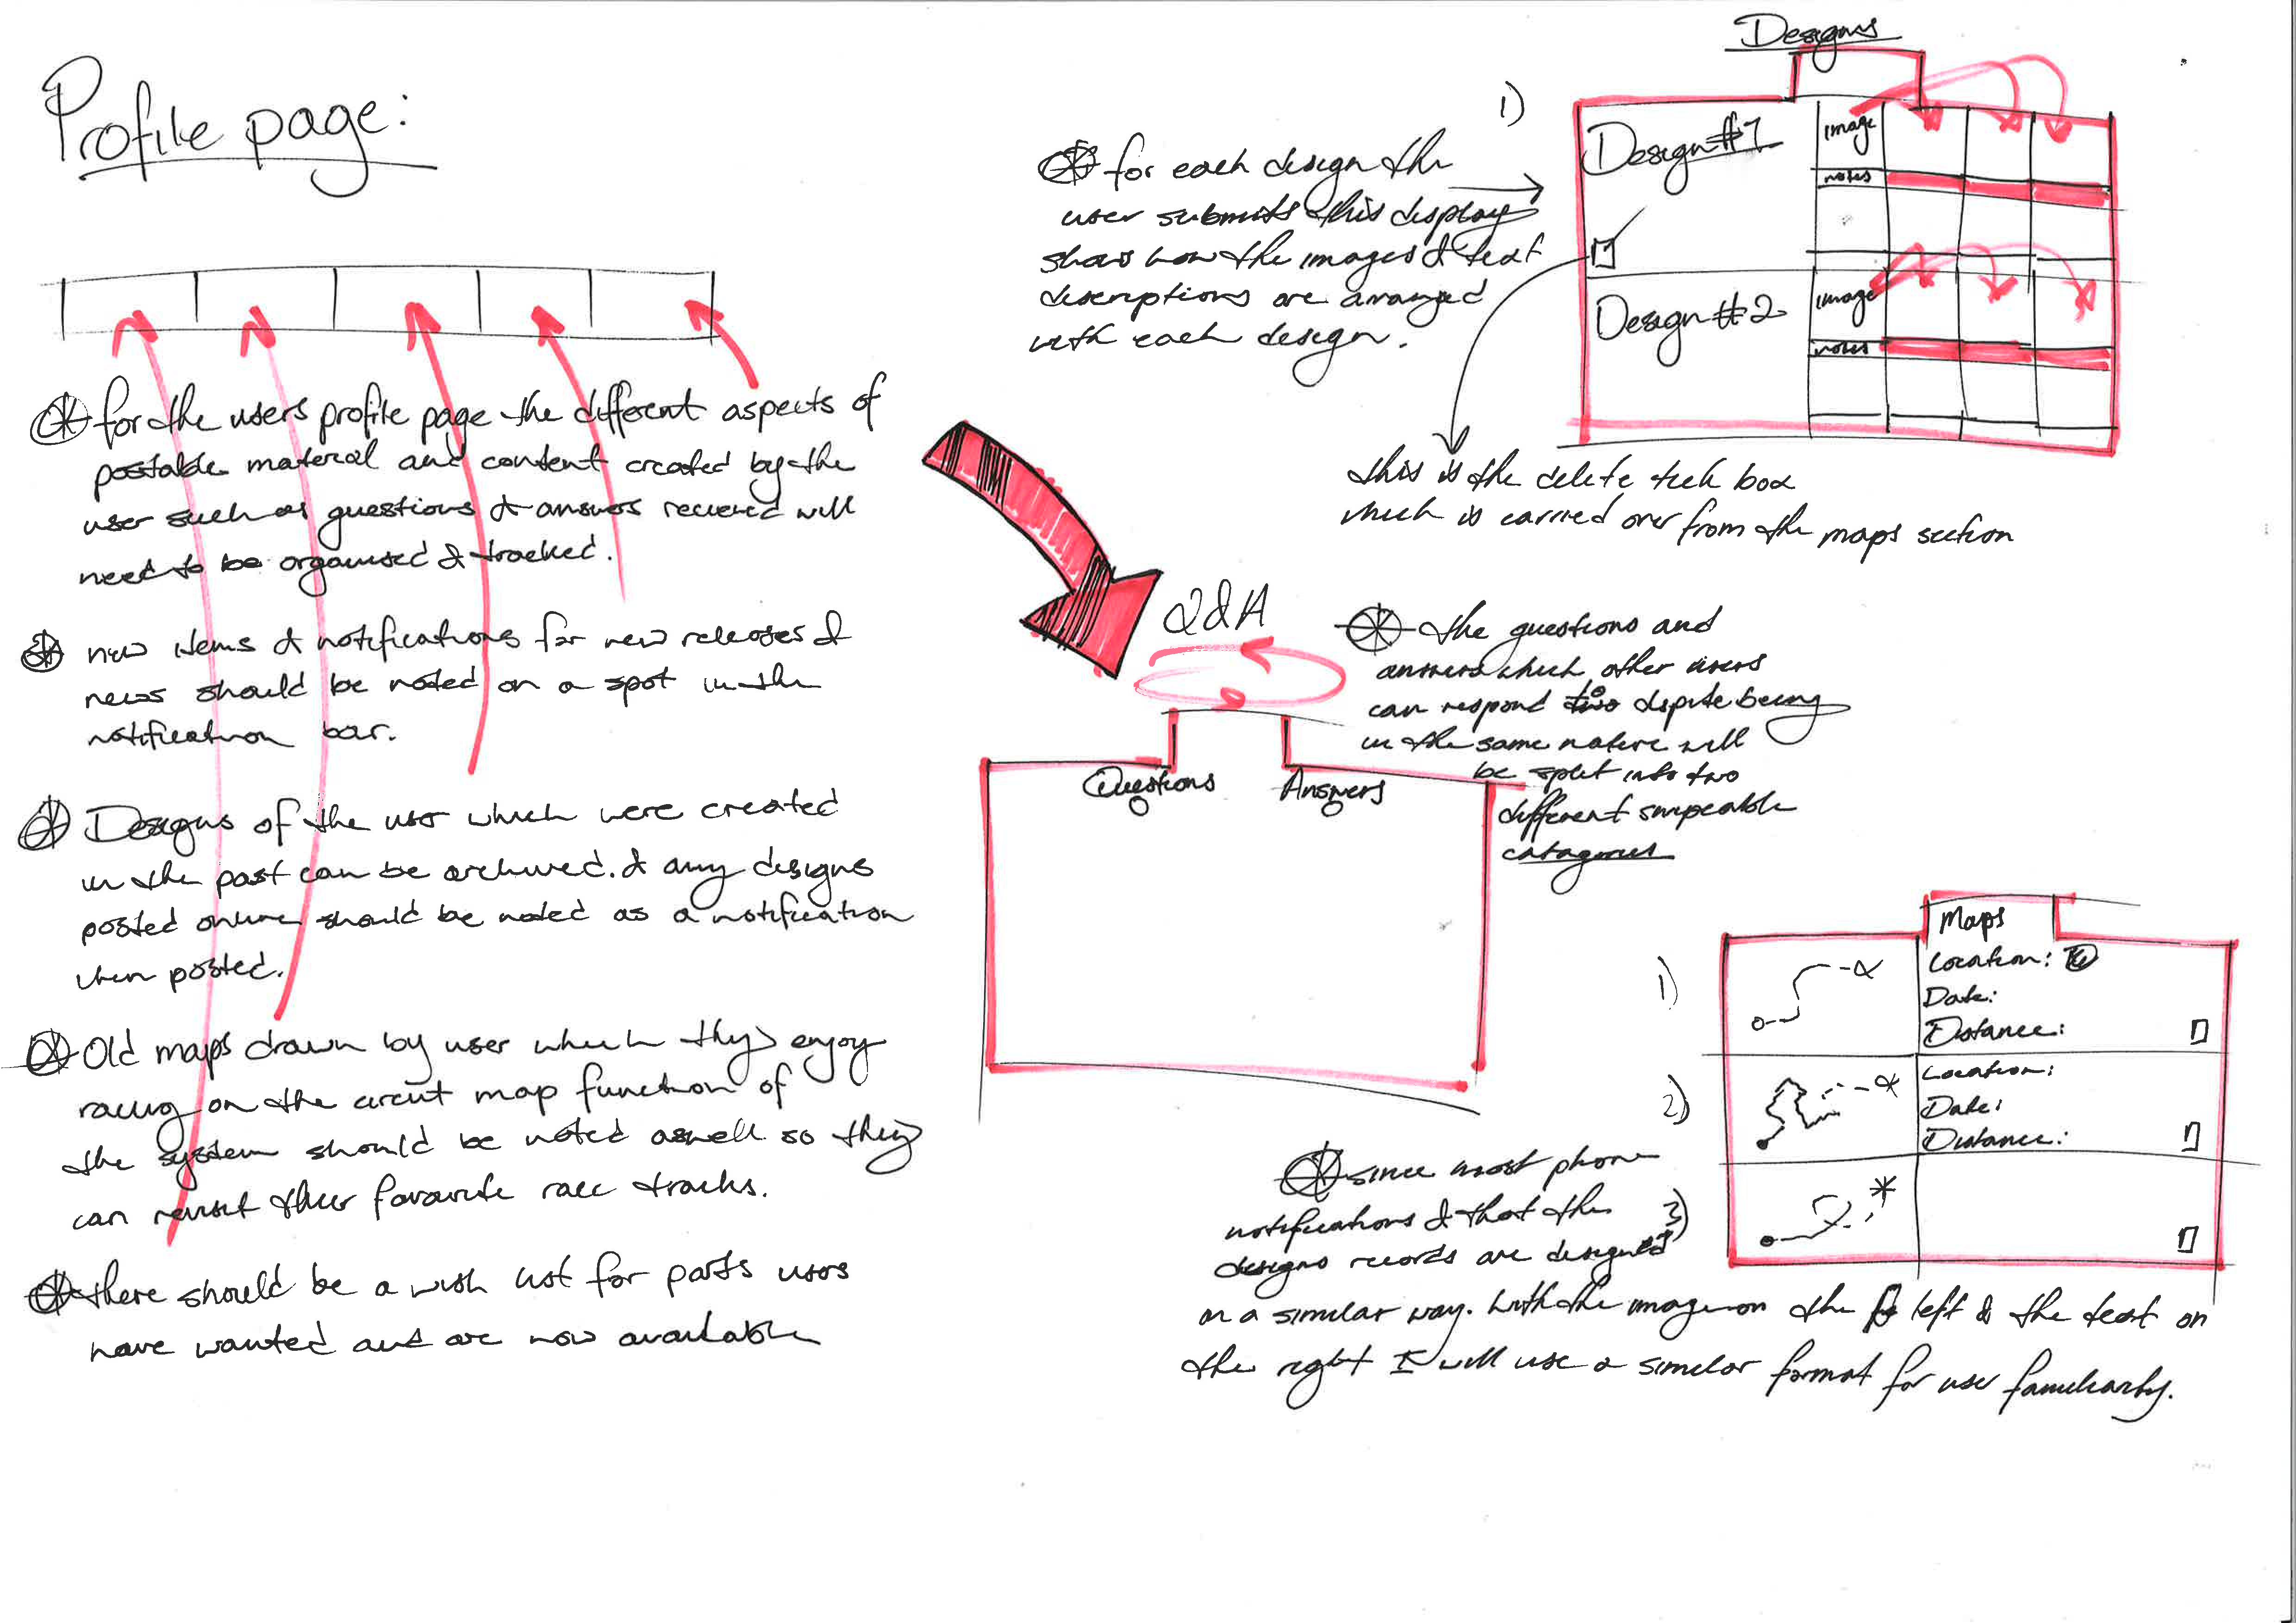 Profile page:
for the users profile page the different aspects of
postable material and content created by the
user such as questions & answers recieved will
need to be organised & tracked.
new items & notifications for new releases &
news should be noted on a spot in the
notification bar.
Designs of the user which were created
in the past can be archived. & any designs
posted online should be noted as a notification
when posted.
Old maps drawn by user which they enjoy
racing on the circut map function of
the system should be noted aswell so they
can revisit their favourite race tracks.
there should be a wish list for parts users
have wanted and are now available
Designs
1)
for each design the
user submits this display
shows how the images & text
descriptions are arranged
with each design.
Design #1
image
notes
Design #2
image
notes
this is the delete tick box
which is carried over from the maps section
Q&A
the questions and
answers which other users
can respond to dispite being
in the same nature will
be split into two
different swipeable
catagories
Questions
Answers
Maps
1)
Location:
Date:
Distance:
2)
Location:
Date:
Distance:
3)
since most phone
notifications & that the
designs records are designed
in a similar way. with the image on the left & the text on
the right I will use a similar format for user familiarity.